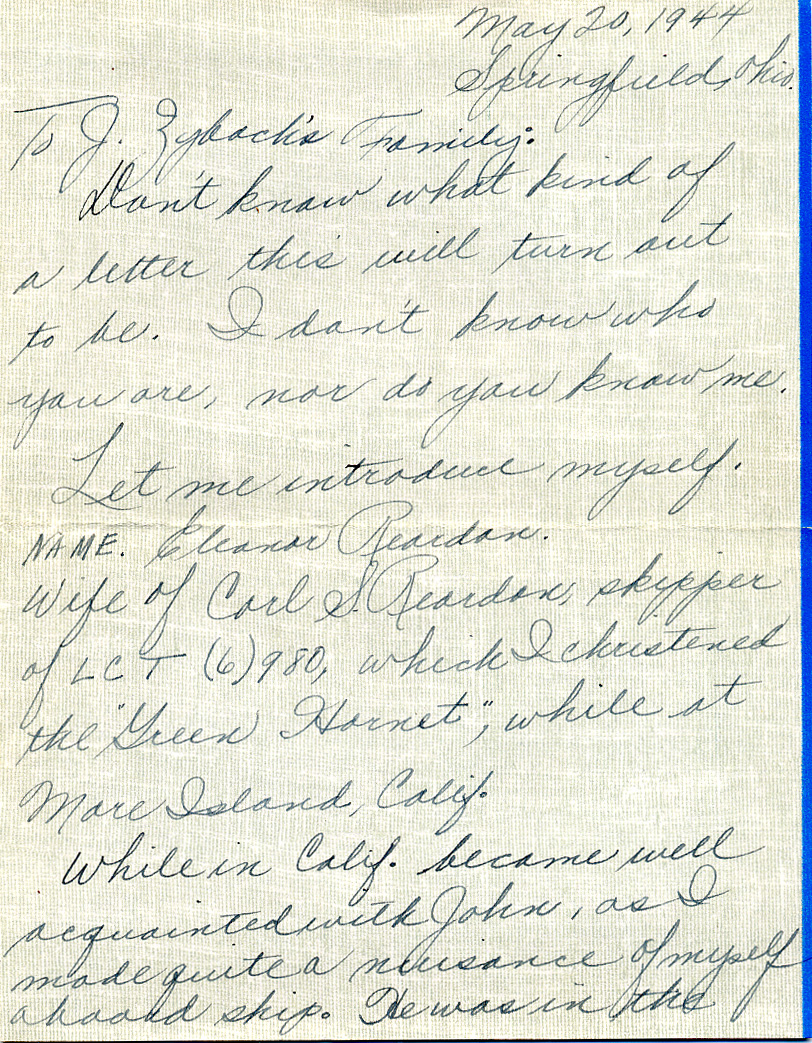 May 20, 1944
Springfield, Ohio.
To J. Zyback's Family:
Don't know what kind of
a letter this will turn out
to be. I don't know who
you are, nor do you know me.
Let me introduce myself.
NAME. Eleanor Reardon.
Wife of Carl S. Reardon, skipper
of LCT (6) 980, which I christened
the "Green Hornet", while at
Mare Island, Calif.
While in Calif. became well
acquainted with John, as I
made quite a nuisance of myself
aboard ship. He was in the